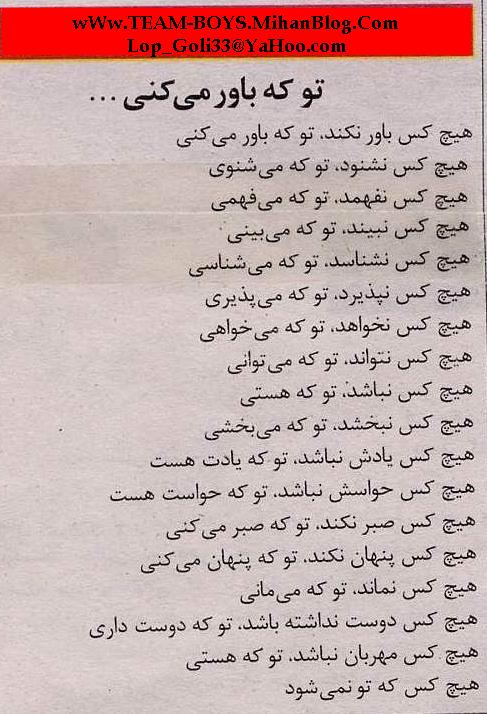 wWw.TEAM-BOYS.MihanBlog.Com
Lop_Goli33@YaHoo.com
تو که باور می‌کنی ...
هیچ کس باور نکند، تو که باور می‌کنی
هیچ کس نشنود، تو که می‌شنوی
هیچ کس نفهمد، تو که می‌فهمی
هیچ کس نبیند، تو که می‌بینی
هیچ کس نشناسد، تو که می‌شناسی
هیچ کس نپذیرد، تو که می‌پذیری
هیچ کس نخواهد، تو که می‌خواهی
هیچ کس نتواند، تو که می‌توانی
هیچ کس نباشد، تو که هستی
هیچ کس نبخشد، تو که می‌بخشی
هیچ کس یادش نباشد، تو که یادت هست
هیچ کس حواسش نباشد، تو که حواست هست
هیچ کس صبر نکند، تو که صبر می‌کنی
هیچ کس پنهان نکند، تو که پنهان می‌کنی
هیچ کس نماند، تو که می‌مانی
هیچ کس دوست نداشته باشد، تو که دوست داری
هیچ کس مهربان نباشد، تو که هستی
هیچ کس که تو نمی‌شود